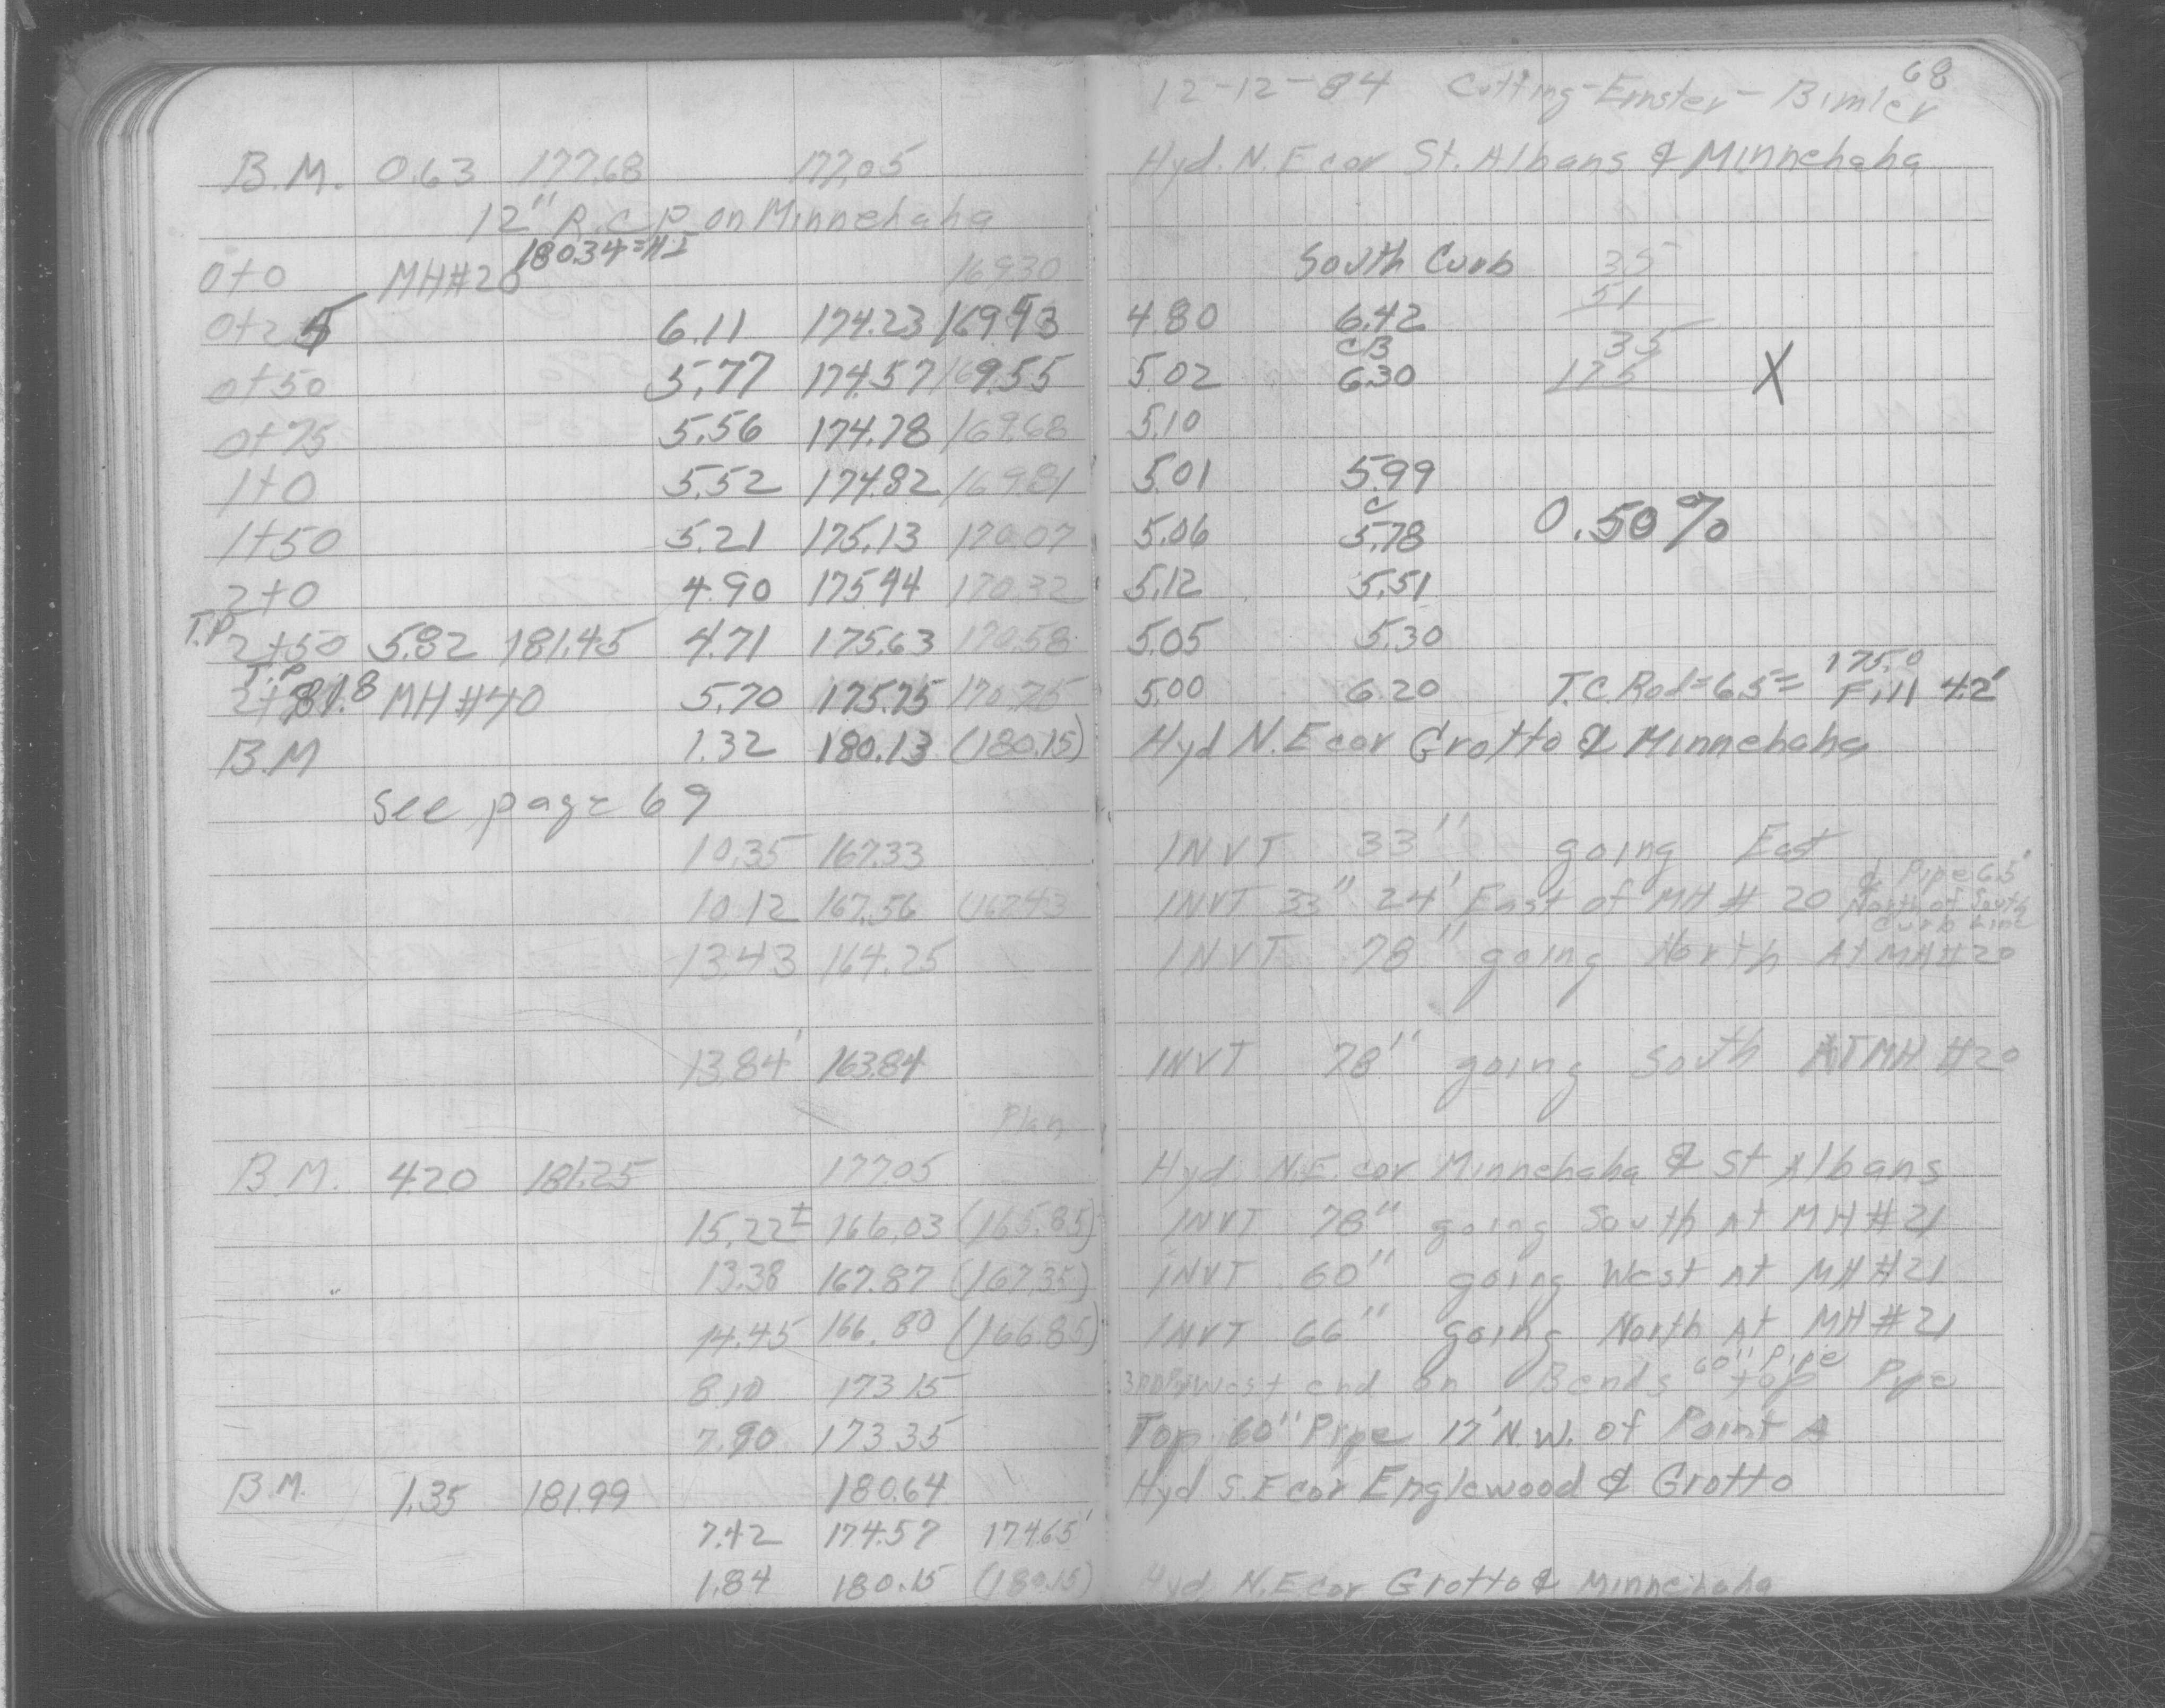 68
12-12-84 Cutting-Ernster-Bimler
B.M. 0.63 177.68 177.05 Hyd. N.E cor St. Albans & Minnehaha
12" R.C.P. on Minnehaha
180.34=H.I
0+0 MH#20 169.30 South Curb 35
51
0+24 6.11 174.23 169.43 4.80 6.42
CB 35
0+50 5.77 174.57 169.55 5.02 6.30 175 X
0+75 5.56 174.78 169.68 5.10
1+0 5.52 174.82 169.81 5.01 5.99
C
1+50 5.21 175.13 170.07 5.06 5.78 0.50%
2+0 4.90 175.44 170.32 5.12 5.51
T.P.
2+50 5.82 181.45 4.71 175.63 170.58 5.05 5.30
T.P. 175.0
2+81.8 MH#40 5.70 175.75 170.75 5.00 6.20 T.C. Rod=6.5= Fill 4.2'
B.M 1.32 180.13 (180.15) Hyd N.E cor Grotto & Minnehaha
See page 69
10.35 167.33 INVT 33" going East
10.12 167.56 (167.43 INVT 33" 24' East of MH# 20 Pipe 6.5' North of South Curb Line
13.43 164.25 INVT 78" going North At MH#20
13.84' 163.84 INVT 78" going South AT MH #20
Plan
B.M. 4.20 181.25 177.05 Hyd. N.E. cor Minnehaha & St Albans
15.22± 166.03 (165.85) INVT 78" going South At MH#21
13.38 167.87 (167.35) INVT 60" going West At MH#21
14.45 166.80 (166.85) INVT 66" going North At MH#21
60" Pipe
8.10 173.15 West end on Bends top Pipe
7.90 173.35 Top 60" Pipe 17' N.W. of Point A
B.M. 1.35 181.99 180.64 Hyd S.E cor Englewood & Grotto
7.42 174.57 174.65'
1.84 180.15 (180.15) Hyd. N.E cor Grotto & Minnehaha